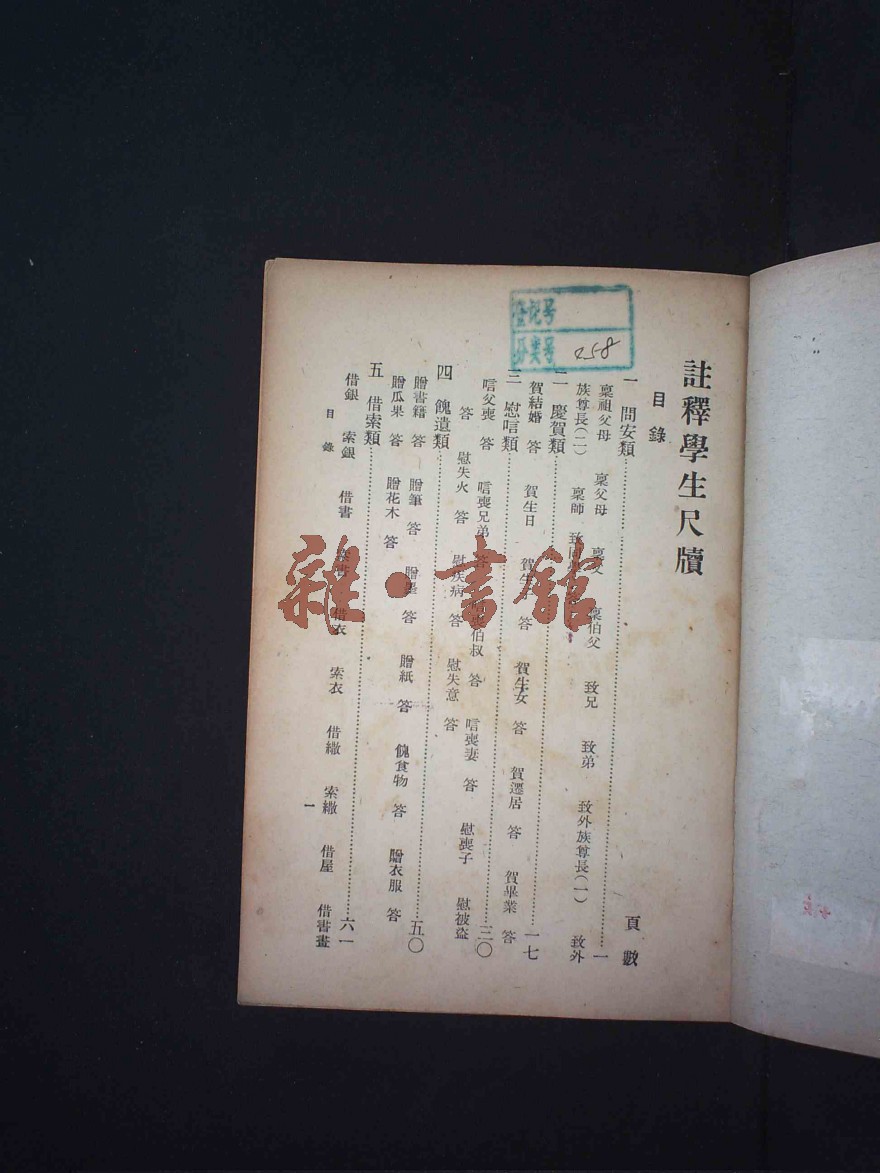 註釋學生尺牘
目錄
頁數
一 問安類 一
稟祖父母 稟父母 稟伯父 致兄 致弟 致外族尊長(一) 致外
族尊長(二) 稟師
二 慶賀類 一七
賀結婚 答 賀生日 答 賀生女 答 賀遷居 答 賀畢業 答
三 慰唁類 三〇
唁父喪 答 唁喪兄弟 答 唁喪伯叔 答 唁喪妻 答 慰喪子 慰被盜
答 慰失火 答 慰疾病 答 慰失意 答
四 餽遺類 五〇
贈書籍 答 贈筆 答 贈墨 答 贈紙 答 餽食物 答 贈衣服 答
贈瓜果 答 贈花木 答
五 借索類 六一
借銀 索銀 借書 借衣 索衣 借繖 索繖 借屋 借書畫
目錄
一
登記号
分类号 258
雜·書館